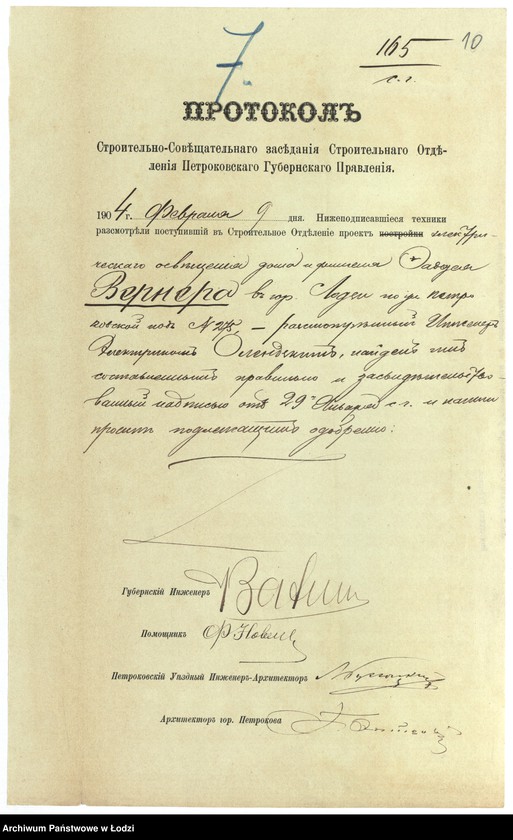 7.
165
с. г.
10
ПРОТОКОЛЪ
Строительно-Совѣщательнаго засѣданія Строительнаго Отдѣ-
ленія Петроковскаго Губернскаго Правленія.
1904 г. Февраля 9 дня. Нижеподписавшіеся техники
разсмотрѣли поступившій въ Строительное Отдѣленіе проектъ постройки электри-
ческаго освѣщенія дома и Эдуарда
Вернера въ гор. Лодзи по ул. Петро-
ковской подъ № – разсмотрѣнный Инженеръ
Электрикомъ найденъ имъ
составленнымъ правильно и засвидѣтельство-
ванный надписью отъ 29 Января с. г. и
подлежащимъ одобренію:
Губернскій Инженеръ
Помощникъ
Петроковскій Уѣздный Инженеръ-Архитекторъ
Архитекторъ гор. Петрокова
Archiwum Państwowe w Łodzi